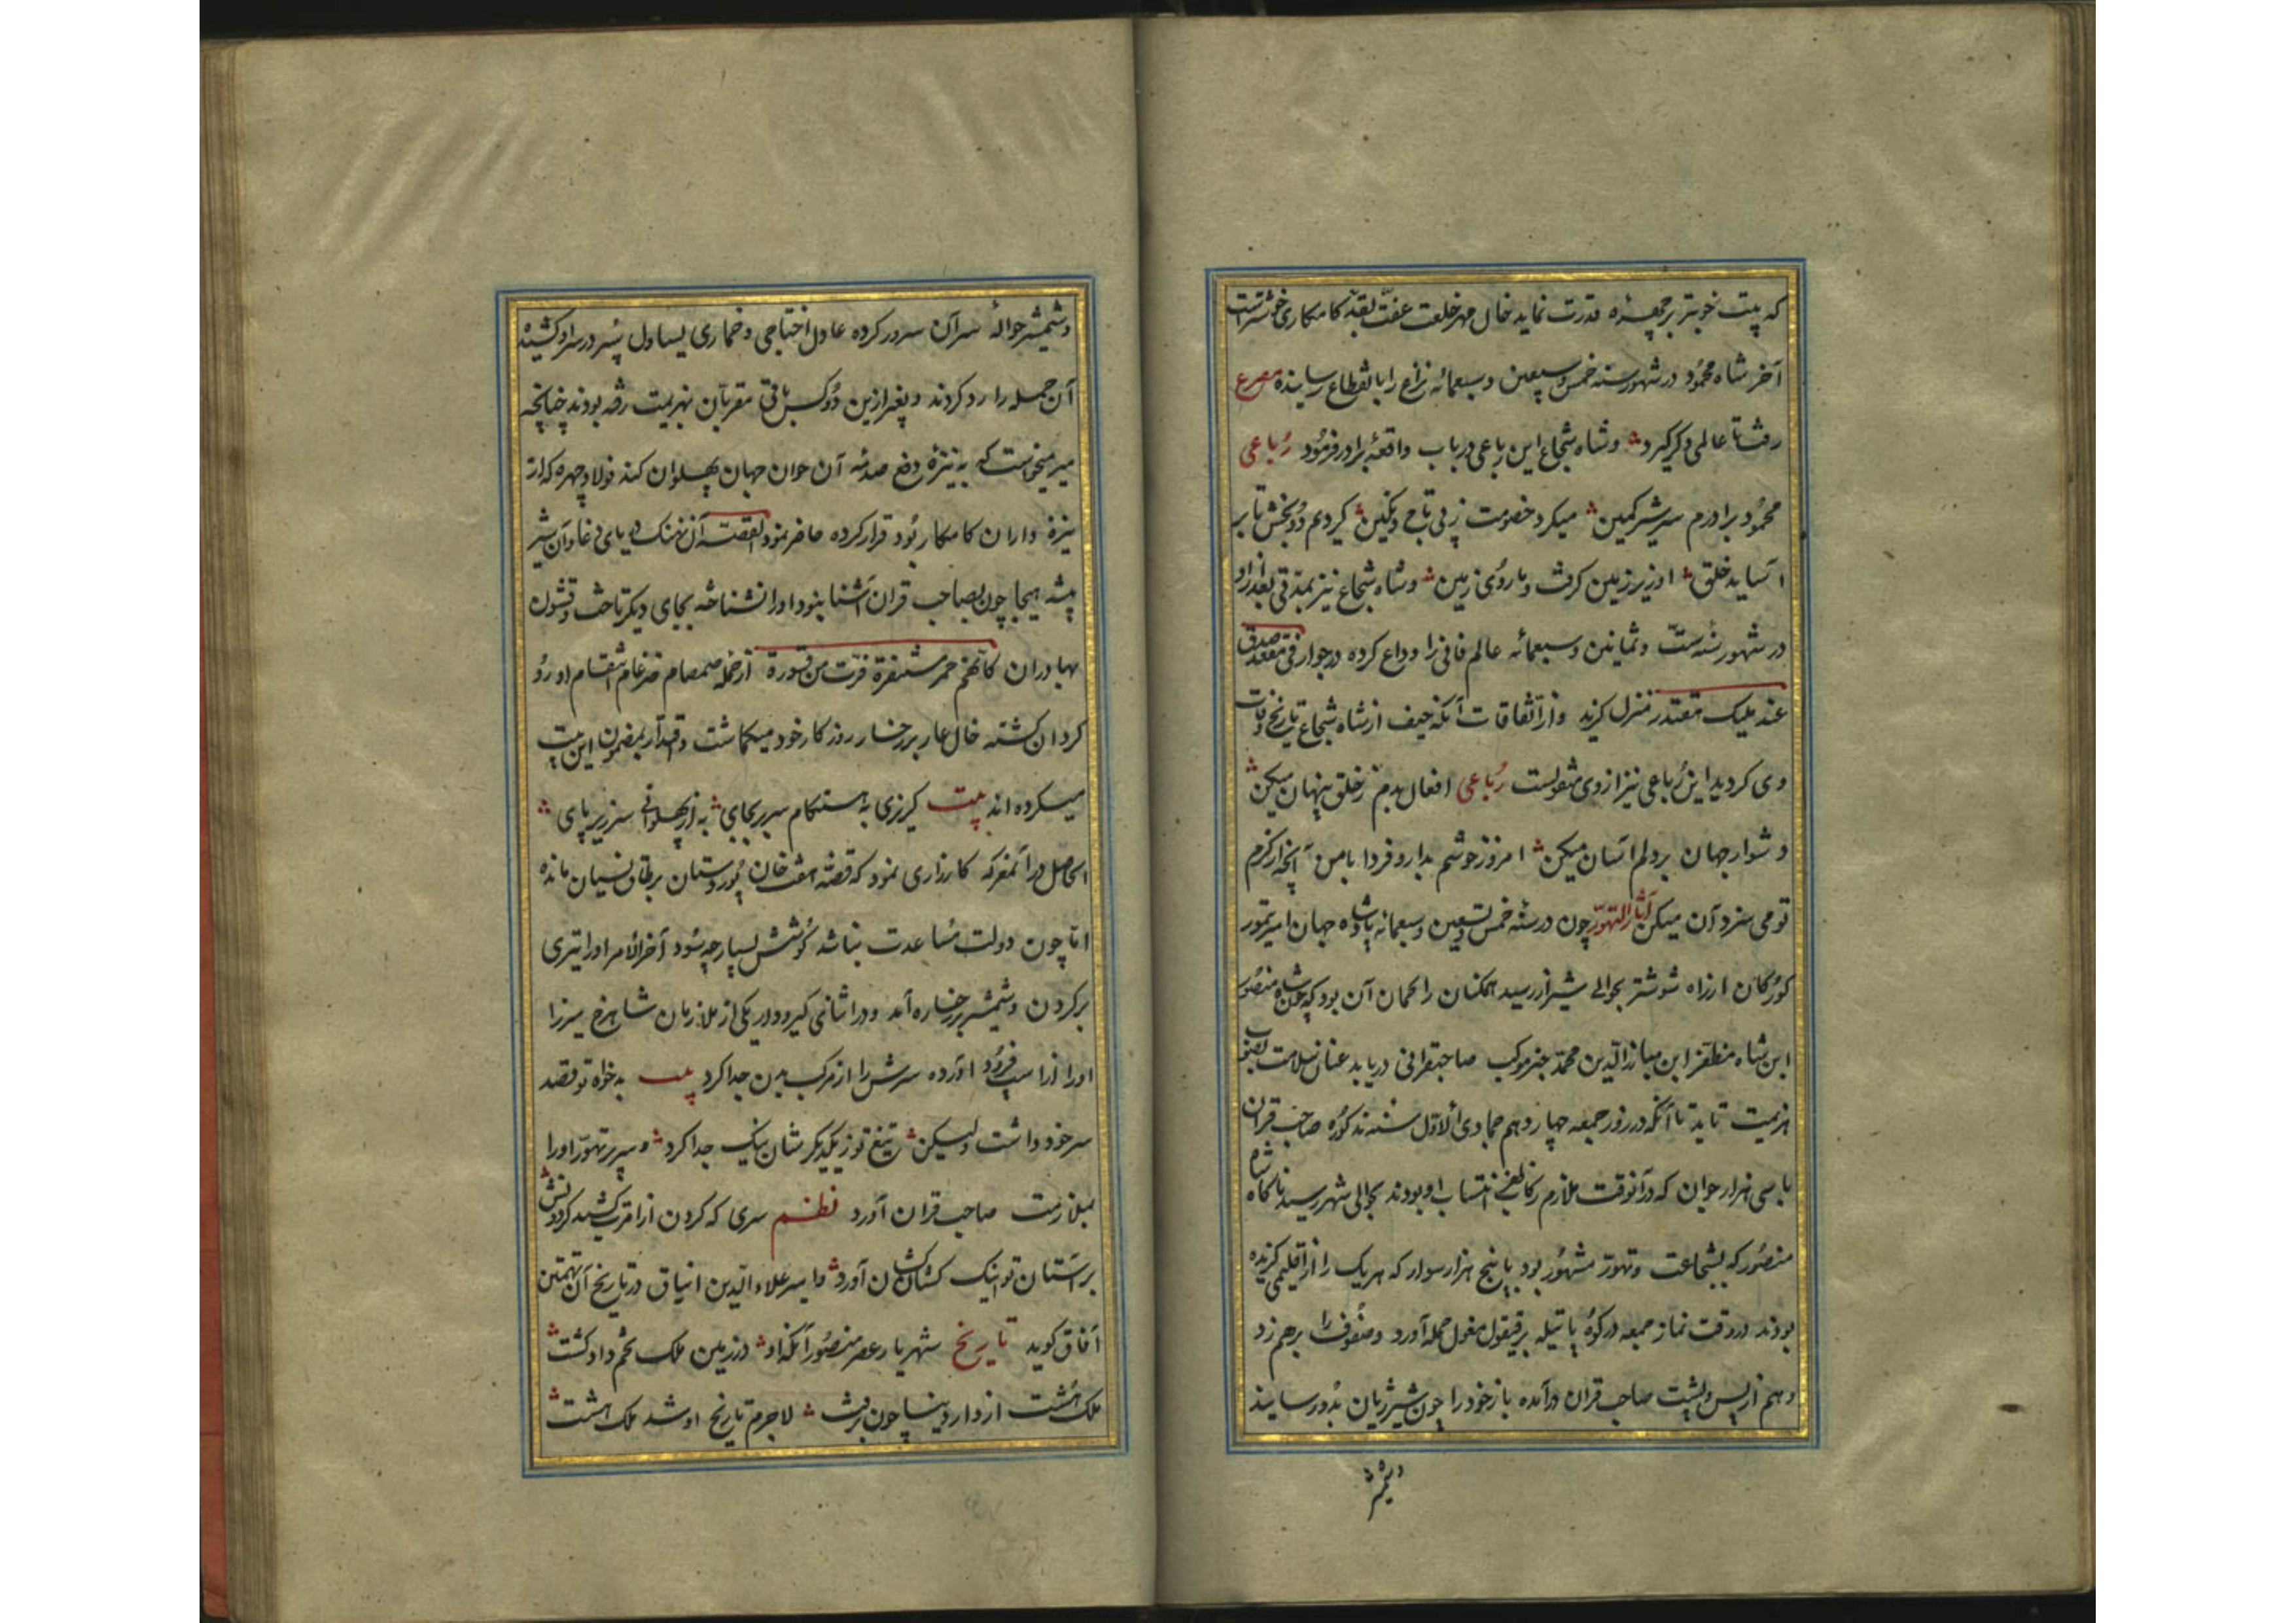 که بیت خوبتر بر چهرهٔ قدرت نماید خال مهر خلعت عفت بقد کامکاری خوشترست
آخر شاه محمود در شهور سنه خمس و سبعین و سبعمائه نزاع را بانقطاع رسانیده مصرع
رفت تا عالمی دگر گیرد و شاه شجاع این رباعی در باب واقعهٔ برادر فرمود رباعی
محمود برادرم شه شیر کمین میکرد خصومت از پی تاج و نگین کردیم دو بخش تا بر
آساید خلق او زیر زمین گرفت و ما روی زمین و شاه شجاع نیز بمدتی بعد از او
در شهور سنه ست و ثمانین و سبعمائه عالم فانی را وداع کرده در جوار فی مقعد صدق
عند ملیک مقتدر منزل گزید و از اتفاقات آنکه حیف از شاه شجاع تاریخ وفات
وی گردید این رباعی نیز از وی منقولست رباعی افعال بدم ز خلق پنهان میکن
دشوار جهان بر دلم آسان میکن امروز خوشم بدار و فردا با من آنچه از کرم
تو می سزد آن میکن آثار التهور چون در سنه خمس و تسعین و سبعمائه پادشاه جهان امیر تیمور
کورکان از راه شوشتر بحوالی شیراز رسید همکنان را گمان آن بود که چون شاه منصور
ابن شاه مظفر ابن مبارز الدین محمد خبر موکب صاحبقرانی دریابد عنان سلامت بصوب
هزیمت تابد تا آنکه در روز جمعه چهاردهم جمادی الاول سنه مذکوره صاحب قران
با سی هزار جوان که در آنوقت ملازم رکاب ظفر انتساب او بودند بحوالی شهر رسید ناگاه شاه
منصور که بشجاعت و تهور مشهور بود با پنج هزار سوار که هر یک را از اقلیمی گزیده
بودند در وقت نماز جمعه در کوه پاتیله بر قیقول مغول حمله آورد و صفوف را برهم زد
و هم از پس و پشت صاحب قران درآمده باز خود را چون شیر ژیان بدو رسانید
و شمشیر
و شمشیر حوالهٔ سر آن سرور کرده عادل اختاجی و خماری یساول سپر در سر او کشیده
آن حمله را رد کردند و بغیر ازین دو کس باقی مقربان بهزیمت رفته بودند چنانچه
میر میخواست که به نیزه دفع صدمه آن جوان جهان پهلوان کند فولاد چهره که از
نیزه داران کامکار بود قرار کرده حاضر نبود القصه آن نهنگ دریای دغا و آن شیر
بیشه هیجا چون بصاحب قران آشنا نبود او را نشناخته بجای دیگر تاخت و قشون
بهادران کانهم حمر مستنفرة فرت من قسورة از حمله صمصام ضرغام انتقام او رو
گردان گشته خال عار بر رخسار روزگار خود میگماشت و اقتدا بمضمون این بیت
میکرده اند بیت گریزی به هنگام سر بر بجای به از پهلوانی سر زیر پای
الحاصل در آن معرکه کارزاری نمود که قصه هفت خان پور دستان بر طاق نسیان مانده
اما چون دولت مساعدت نباشد کوشش بسیار چه سود آخر الامر او را تیری
بر گردن و شمشیر بر رخساره آمد و در اثنای گیر و دار یکی از ملازمان شاهرخ میرزا
او را از اسب فرود آورده سرش را از مرکب بدن جدا کرد بیت بدخواه تو قصد
سر خود داشت ولیکن تیغ تو ز یکدیگرشان نیک جدا کرد و سر پر تهور او را
بملازمت صاحب قران آورد نظم سری که گردن از امرت کشید گردونش
بر آستان تو اینک کشان کشان آورد و امیر علاء الدین ایناق در تاریخ آن تهمتن
آفاق گوید تاریخ شهریار عصر منصور آنکه او در زمین ملک تخم داد کشت
ملک هشت از دار دنیا چون برفت لاجرم تاریخ او شد ملک هشت